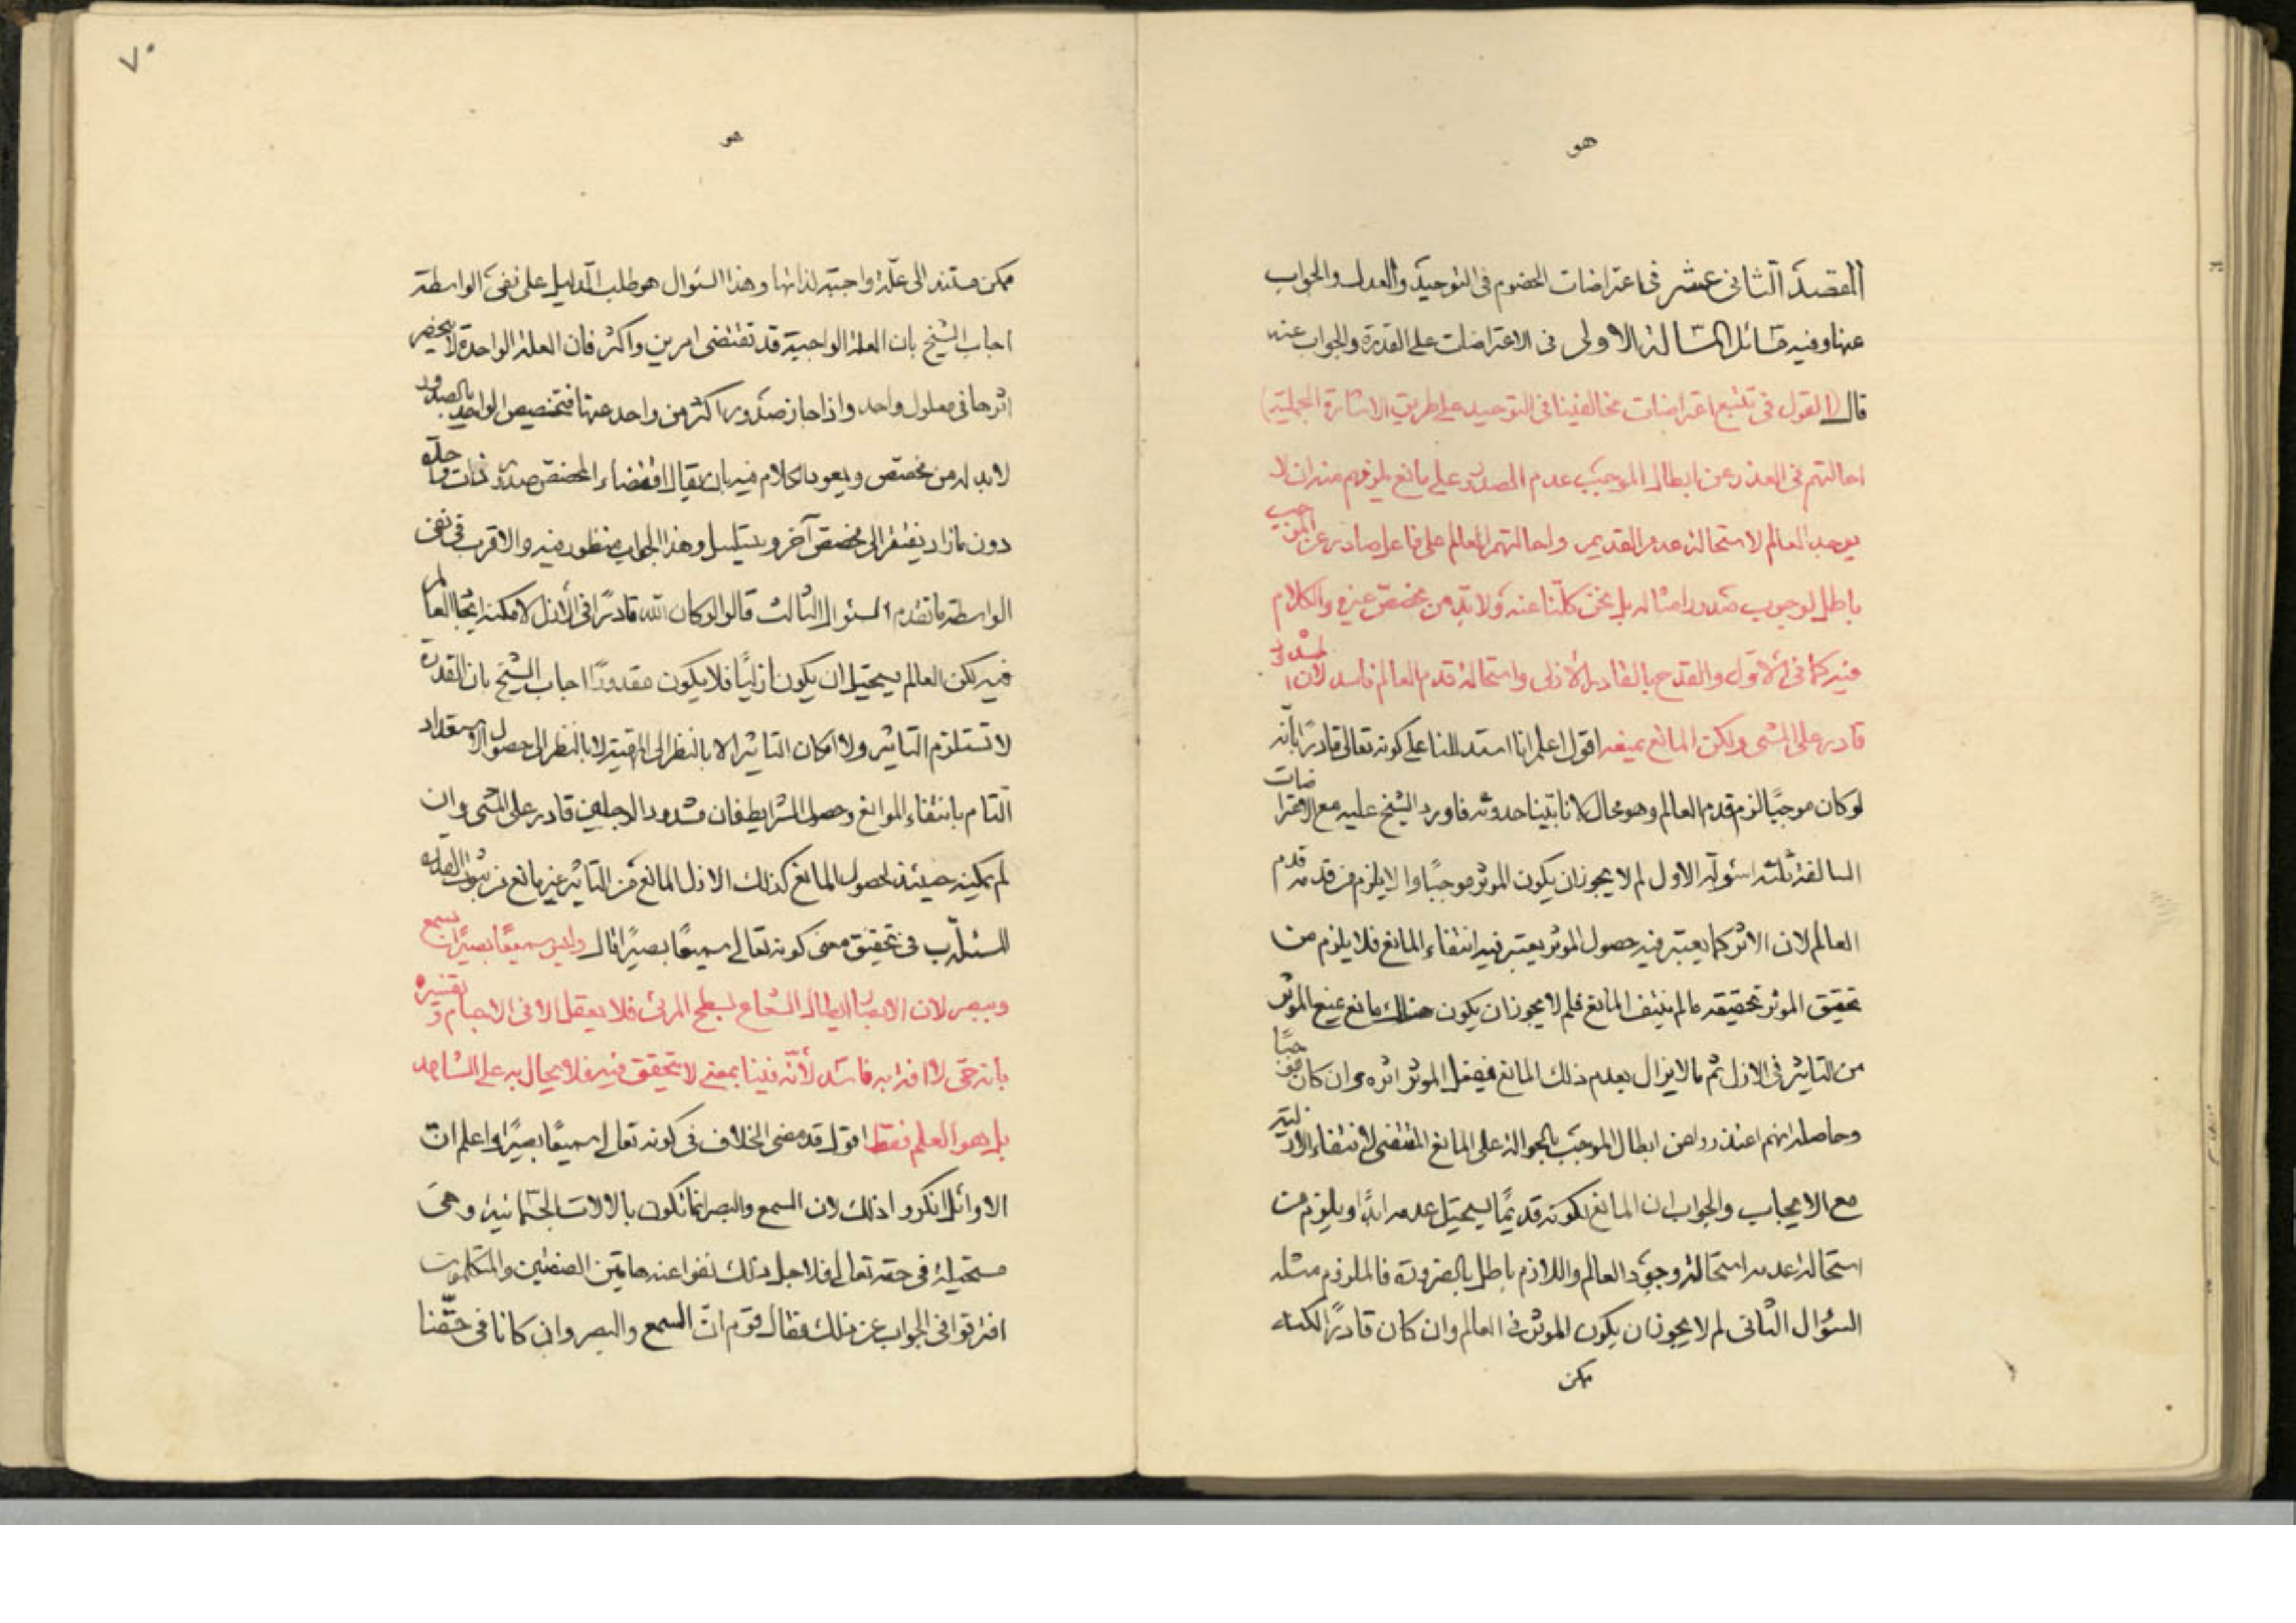 هو
المقصد الثانى عشر فى اعتراضات الخصوم فى التوحيد والعدل والجواب
عنها وفيه مسائل المسالة الاولى فى الاعتراضات على القدرة والجواب عنه
قال القول فى تتبع اعتراضات مخالفينا فى التوحيد على طريق الاشارة الجملية
احالتهم فى العذر عن ابطال الموجب عدم الصدور على مانع يلزمهم منه ان لا
يوجد العالم لاستحالة عدم القديم واحالتهم العالم على فاعل صادر عن الموجب
باطل لوجوب صدور امثاله بل نحن كلنا عنه ولا بد من مخصص غيره والكلام
فيه كما فى الاول والقدح بالقادر الازلى واستحالة قدم العالم فاسد لان
قادر على المشى ولكن المانع يمنعه اقول اعلم انا استدللنا على كونه تعالى قادرا بانه
لو كان موجبا لزم قدم العالم وهو محال لانا بينا حدوثه فاورد الشيخ عليه مع الاعتراضات
السالفة ثلثة اسئولة الاول لم لا يجوز ان يكون الموثر موجبا ولا يلزم من قدمه قدم
العالم لان الاثر كما يعتبر فيه حصول الموثر يعتبر فيه انتفاء المانع فلا يلزم من
تحقيق الموثر تحقيقه ما لم ينتف المانع فلم لا يجوز ان يكون هناك مانع يمنع الموثر
من التاثير فى الازل ثم ما لا يزال يعدم ذلك المانع فيفعل الموثر اثره وان كان موجبا
وحاصله انهم اعتذروا عن ابطال الموجب بالحوالة على المانع المقتضى لانتفاء الازلية
مع الايجاب والجواب ان المانع لكونه قديما يستحيل عدمه ابدا ويلزم من
استحالة عدمه استحالة وجود العالم واللازم باطل بالضرورة فالملزوم مثله
السئوال الثانى لم لا يجوز ان يكون الموثر فى العالم وان كان قادرا لكنه
ممكن
٧٠
هو
ممكن مستند الى علة واجبة لذاتها وهذا السئوال هو طلب الدليل على نفى الواسطة
اجاب الشيخ بان العلة الواجبة قد تقتضى امرين واكثر فان العلة الواحدة لا ينحصر
اثرها فى معلول واحد واذا جاز صدور اكثر من واحد عنها فتخصيص الواحد بالصدور
لا بد له من مخصص ويعود الكلام فيه بان يقال اقتضاء المخصص صدور ذات واحدة
دون ما زاد يفتقر الى مخصص آخر ويتسلسل وهذا الجواب منظور فيه والاقرب فى نفى
الواسطة ما تقدم السئوال الثالث قالوا لو كان الله قادرا فى الازل لامكنه ايجاد العالم
فيه لكن العالم يستحيل ان يكون ازليا فلا يكون مقدورا اجاب الشيخ بان القدرة
لا تستلزم التاثير ولا امكان التاثير الا بالنظر الى الماهية لا بالنظر الى حصول الاستعداد
التام بانتفاء الموانع وحصول الشرايط فان مشدود الرجلين قادر على المشى وان
لم يمكنه حينئذ لحصول المانع كذلك الازل المانع من التاثير غير مانع من ثبوت القدرة
المسئلة ب فى تحقيق معنى كونه تعالى سميعا بصيرا قال وليس سميعا بصيرا ان يسمع
ويبصر لان الابصار ايصال الشعاع لسطح المرئى فلا يعقل الا فى الاجسام وتفسيره
بانه حى لا افة به فاسد لانه فينا بمعنى لا تحقيق فيه فلا يحال به على الشاهد
بل هو العلم فقط اقول قد مضى الخلاف فى كونه تعالى سميعا بصيرا واعلم ان
الاوائل انكروا ذلك لان السمع والبصر انما تكون بالالات الجسمانية وهى
مستحيلة فى حقه تعالى فلاجل ذلك نفوا عنه هاتين الصفتين والمتكلمون
افترقوا فى الجواب عن ذلك فقال قوم ان السمع والبصر وان كانا فى حقنا